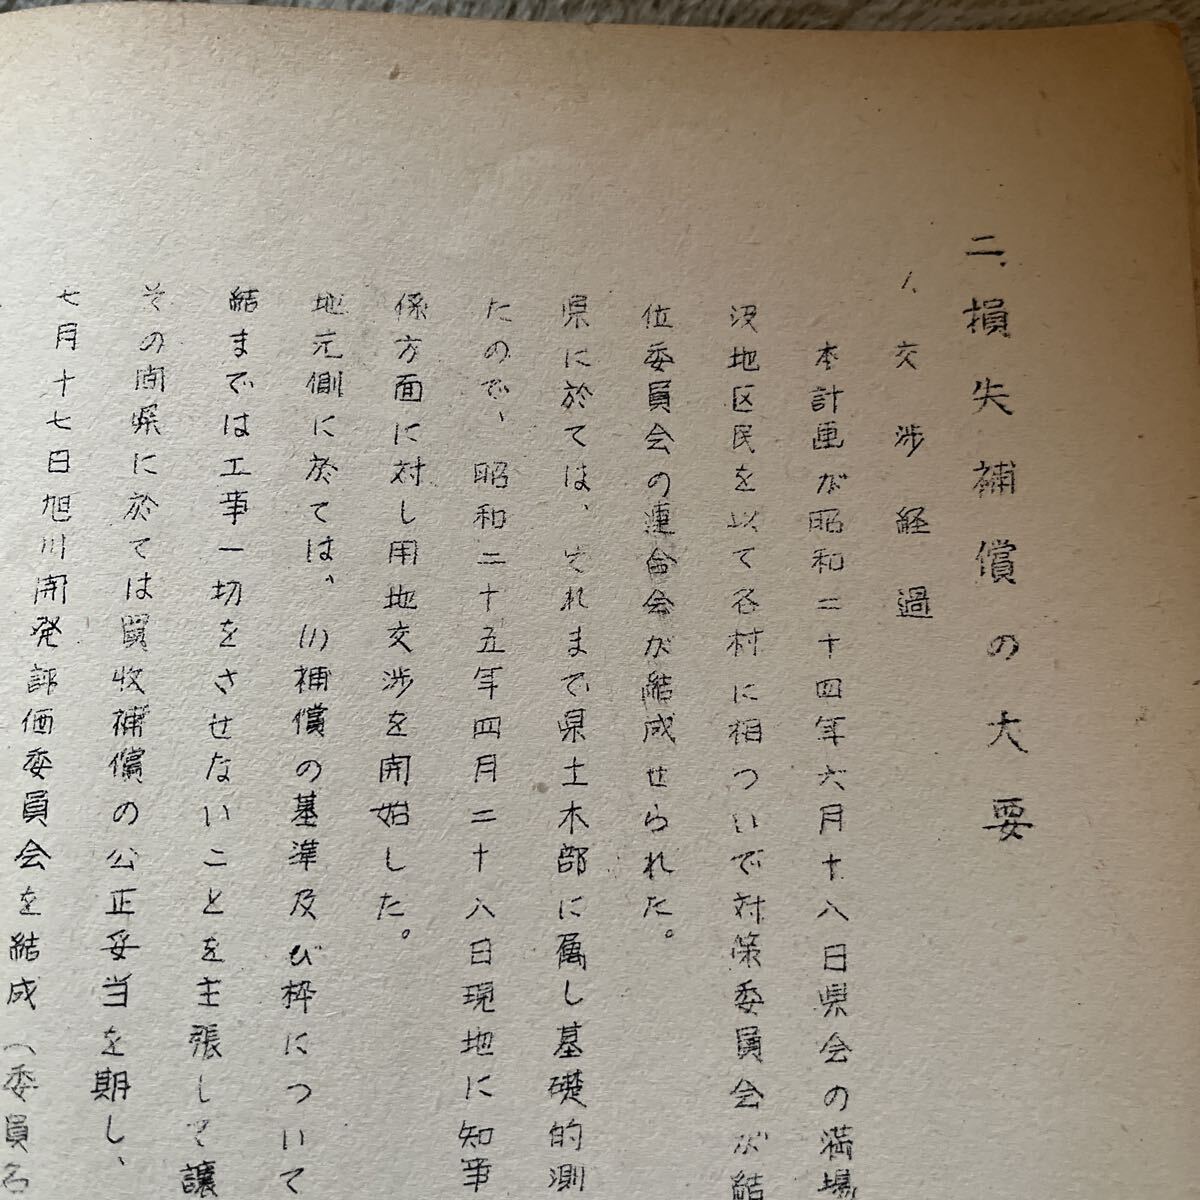 二、損失補償の大要
1、交渉経過
本計画が昭和二十四年六月十八日県会の満場
没地区民を以て各村に相ついで対策委員会が結
位委員会の連合会が結成せられた。
県に於ては、それまで県土木部に属し基礎的測
たので、昭和二十五年四月二十八日現地に知事
係方面に対し用地交渉を開始した。
地元側に於ては、(1)補償の基準及び枠について
結までは工事一切をさせないことを主張して譲
その間県に於ては買収補償の公正妥当を期し、
七月十七日旭川開発評価委員会を結成(委員名